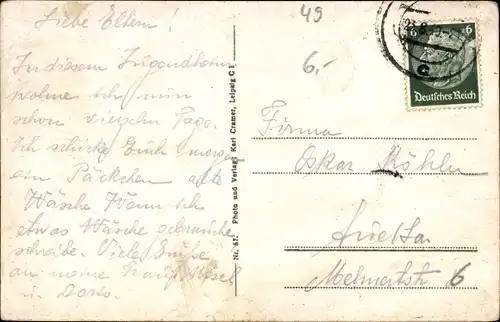 Liebe Eltern!
In diesem Jugendheim
wohne ich nun
schon vierzehn Tage.
Ich schicke Euch morgen
ein Päckchen alte
Wäsche. Wenn ich
etwas Wäsche gebrauche
schreibe. Viele Grüße
an meine
u. Doris.
Nr. 67. Photo und Verlag: Karl Cramer, Leipzig C 1
49
6.-
6 6
Deutsches Reich
Firma
Oskar Röhler
6